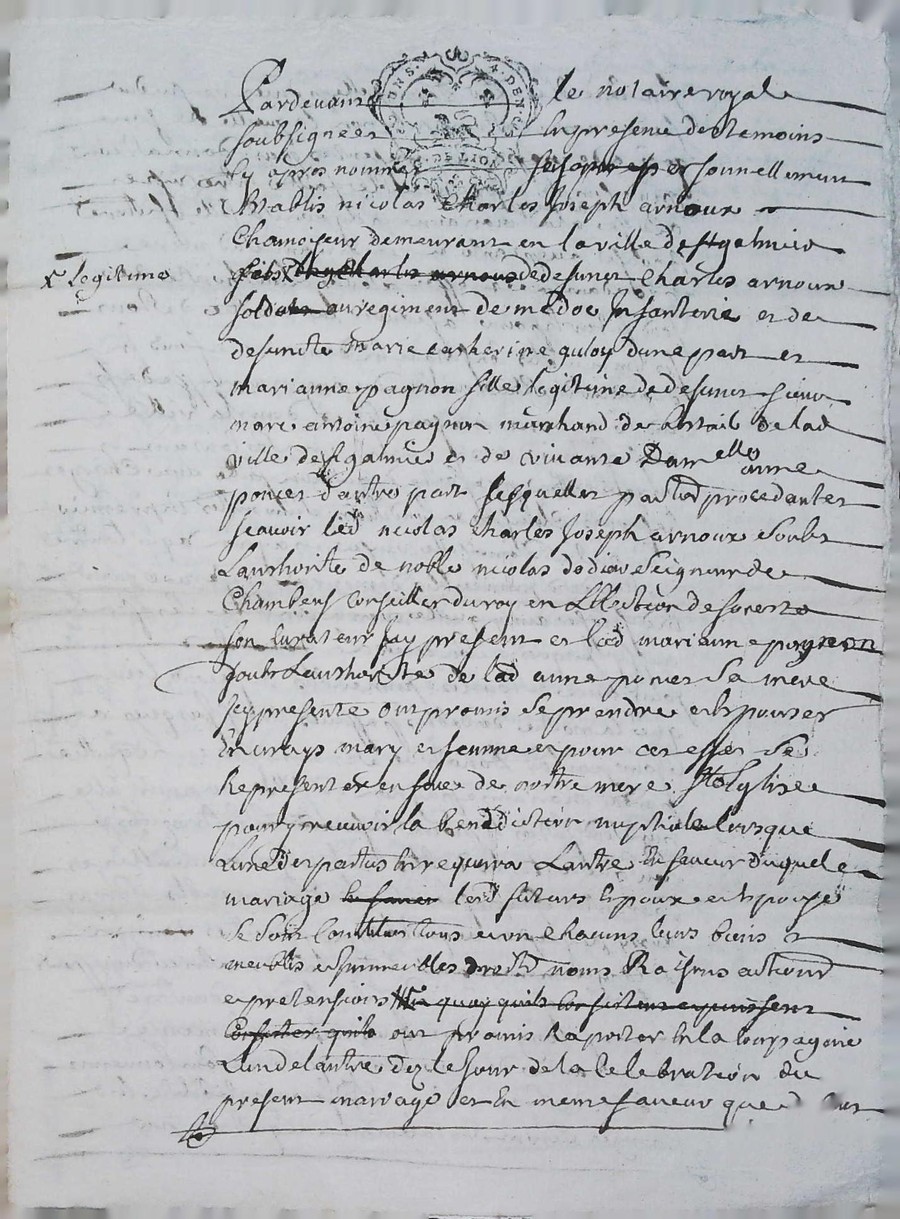 Pardevant le notaire royal
soubsigné et En presence des temoins
Cy apres nommés personnellement
Etablis nicolas Charles Joseph arnoux
Chamoyseur demeurant en la ville de st galmier
x legitime
fils de defunct Charles arnoux
soldat au regiment de medoc Infanterie et de
defuncte Marie catherine guloy dune part et
marianne pagnon fille legitime de defunct sieur
marc antoine pagnon marchand de betail de lad
ville de st galmier et de vivante Damelle anne
ponces d'autre part lesquelles parties procedantes
scavoir led nicolas Charles Joseph arnoux Soubs
Lauthorité de noble nicolas dodieu Seigneur de
Chambeuf Conseiller du roy en LEllection de forests
son Curateur Icy present et lad marianne pagnon
soubs Lauthorité de lad anne ponces Sa mere
Icy presente ont promis Se prendre et Epouser
En vrays mary et femme et pour cet effet Se
Representer en face de nottre mere Ste Eglise
pour y recevoir la benediction nuptiale lorsque
Lune des parties En requerra Lautre En faveur duquel
mariage lesd futurs Epoux et Epouse
Se Sont Constitués tous et un Chacuns leurs biens
meubles et Immeubles droits noms Raisons actions
et pretensions quoy quils Consistent et puissent
Consister quils ont promis Raporter En la Compagnie
Lun de lautre dez le Jour de la Celebration du
present mariage et En meme faveur que